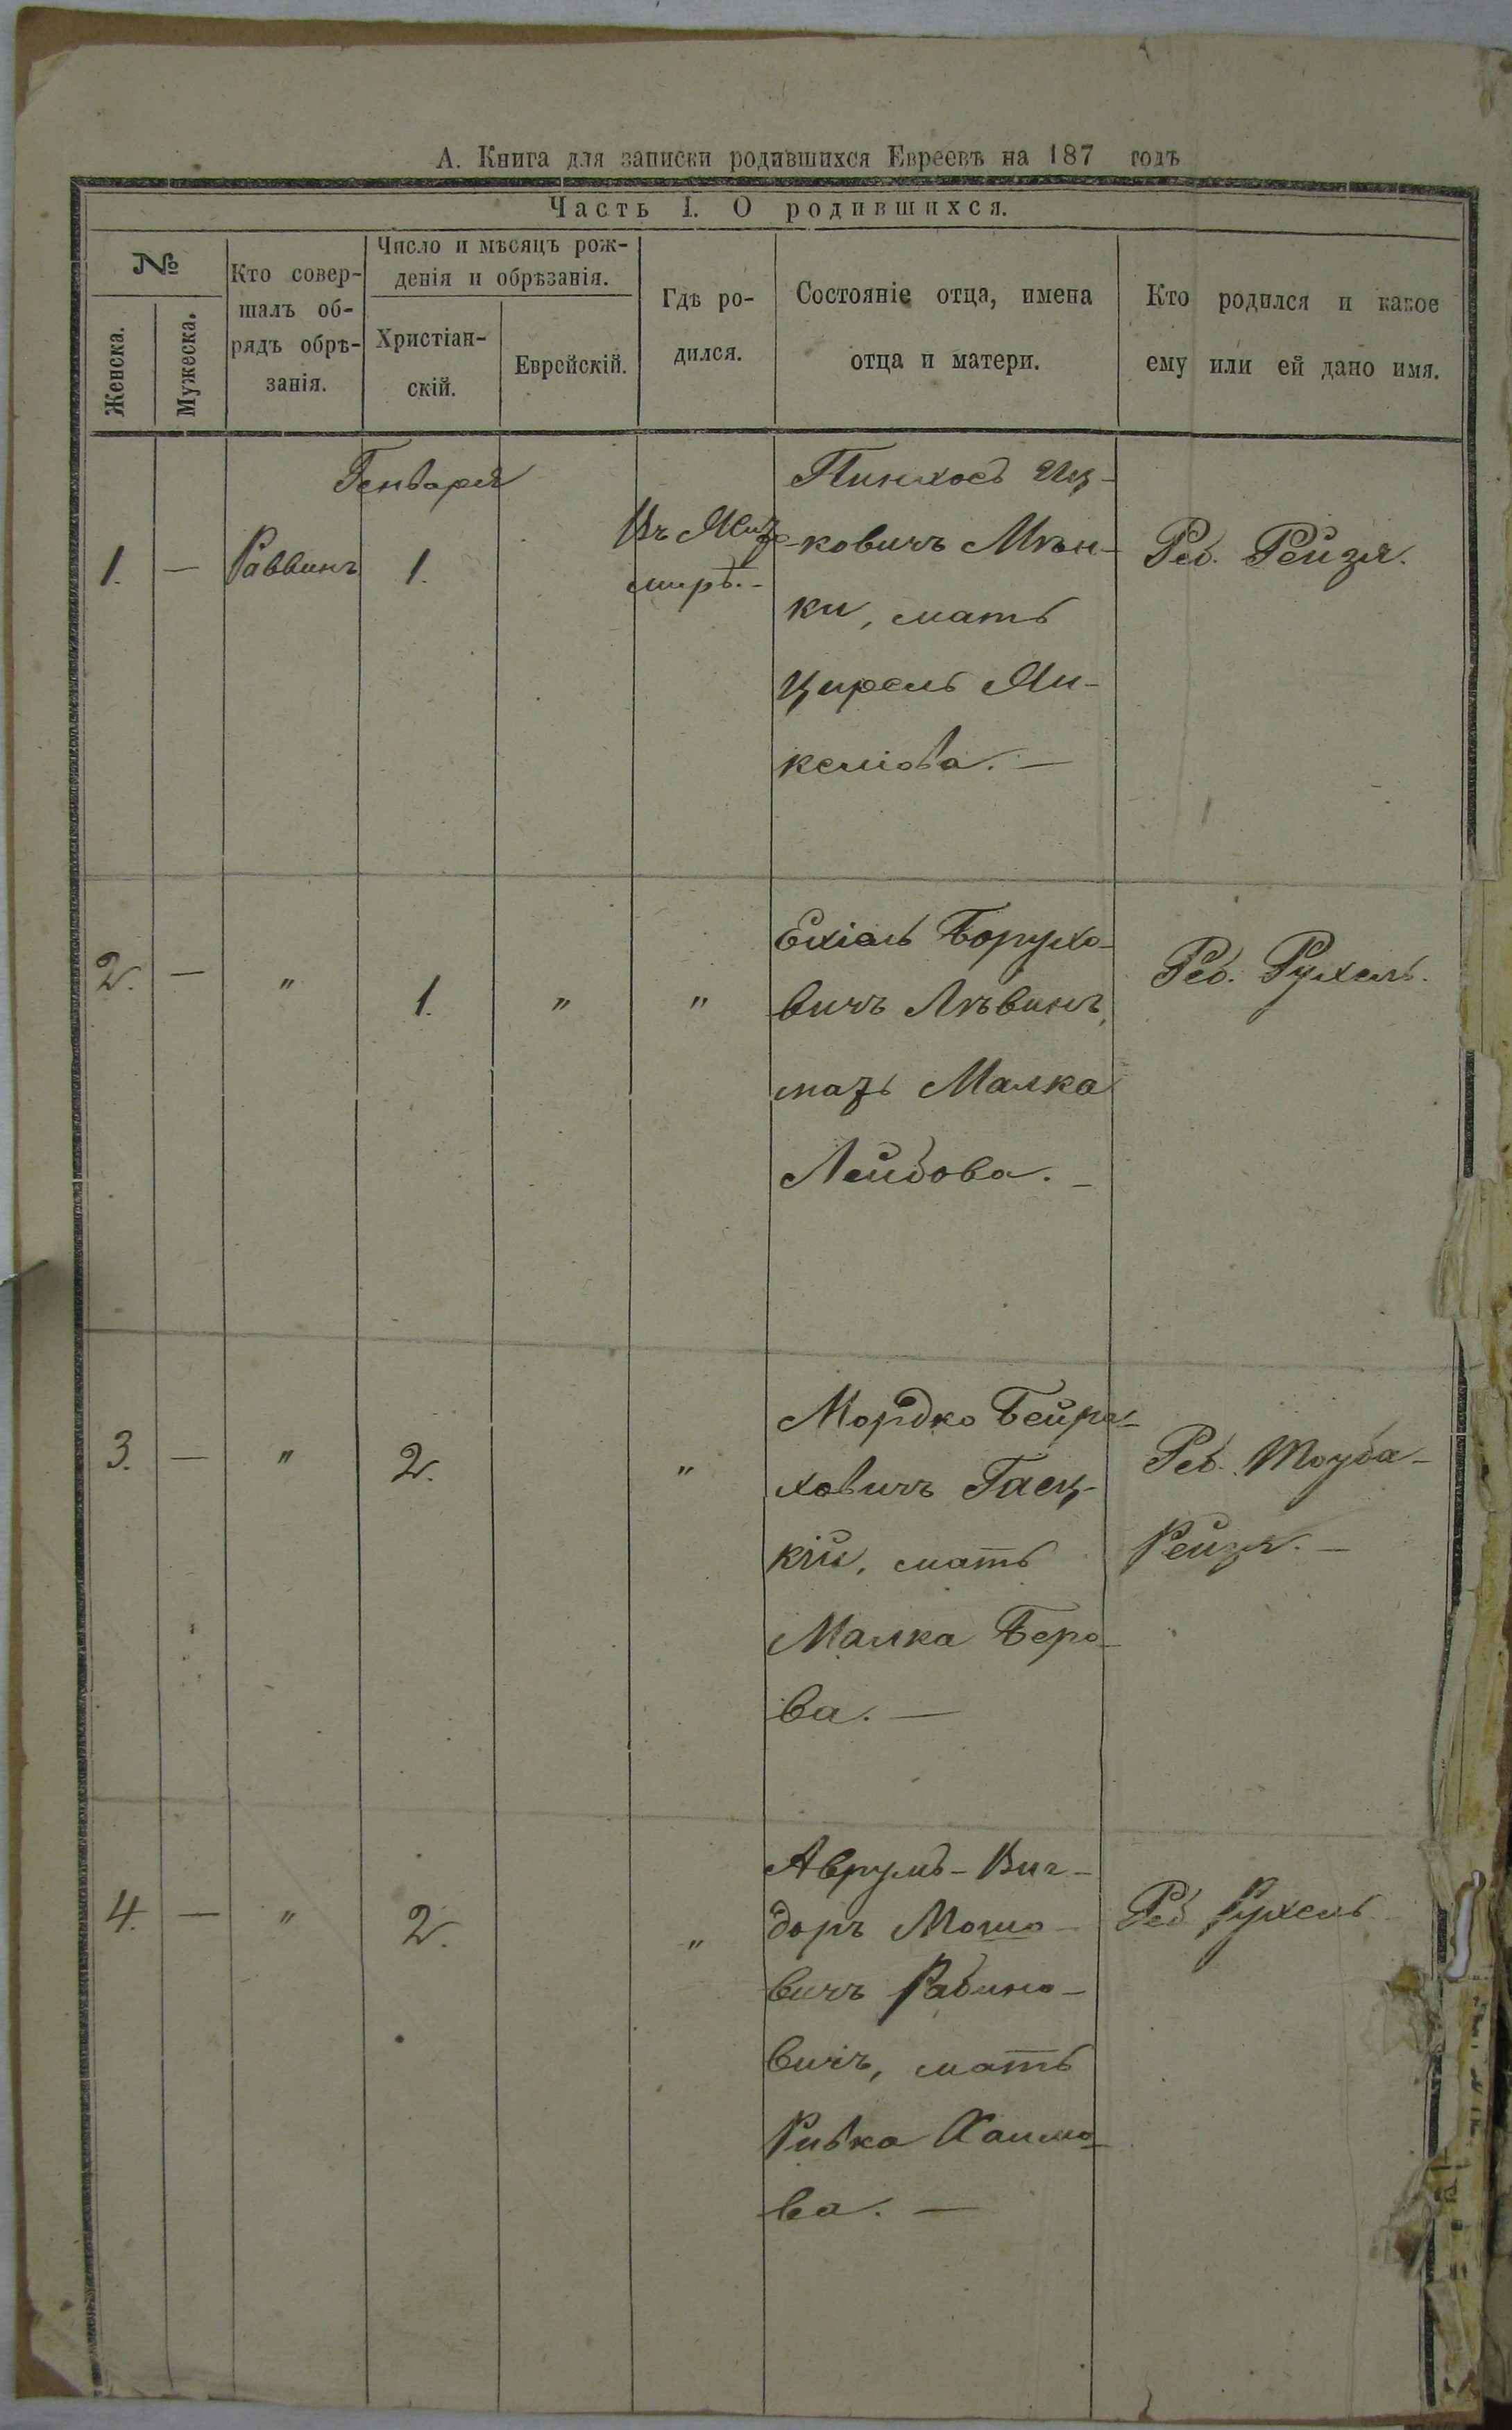 А. Книга для записки родившихся Евреевъ на 187 годъ
Часть I. О родившихся.
№
Женска.
Мужеска.
Кто совер-
шалъ об-
рядъ обрѣ-
занія.
Число и мѣсяцъ рож-
денія и обрѣзанія.
Христіан-
скій.
Еврейскій.
Гдѣ ро-
дился.
Состояніе отца, имена
отца и матери.
Кто родился и какое
ему или ей дано имя.
Генваря
1. — Раввинъ 1.
Въ Жито-
мирѣ.-
Пинхосъ Иц-
ковичъ
мать
Цирель
Реб. Рейзя.
2. — " 1. " "
Ехіаль Борухо-
вичъ Лѣвинъ,
мать Малка
Лейбова. -
Реб. Рухель.
3. — " 2. "
Мордко
ховичъ
кій, мать
Малка Беро-
ва. —
Реб. Тоуба-
Рейзя. —
4. — " 2. "
Аврумъ-Виг-
доръ Мошо-
вичъ Рабино-
вичъ, мать
Ривка Хаимо-
ва. —
Реб Рухель